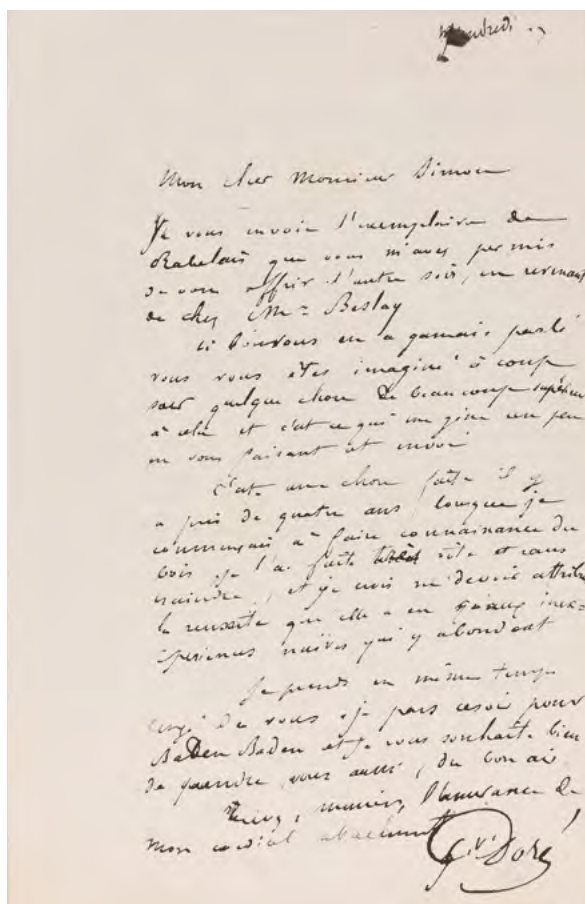 Vendredi
Mon cher Monsieur Simon
Je vous envoie l'exemplaire de
Rabelais que vous m'avez permis
de vous offrir l'autre soir, en revenant
de chez Mme Beslay
si l'on vous en a jamais parlé
vous vous êtes imaginé à coup
sur quelque chose de beaucoup supérieur
à cela et c'est ce qui me gêne un peu
en vous faisant cet envoi
C'est une chose faite il y
a près de quatre ans, lorsque je
commençais à faire connaissance du
bois je l'ai faite vite et sans
craindre, et je crois ne devoir attribuer
la reussite que elle a eu inex-
périences naïves qui y abondent
Je prends en même temps
congé de vous, je pars ce soir pour
Baden Baden et je vous souhaite bien
de prendre, vous aussi, du bon air.
, monsieur, l'assurance de
mon cordial attachement
Gve Doré